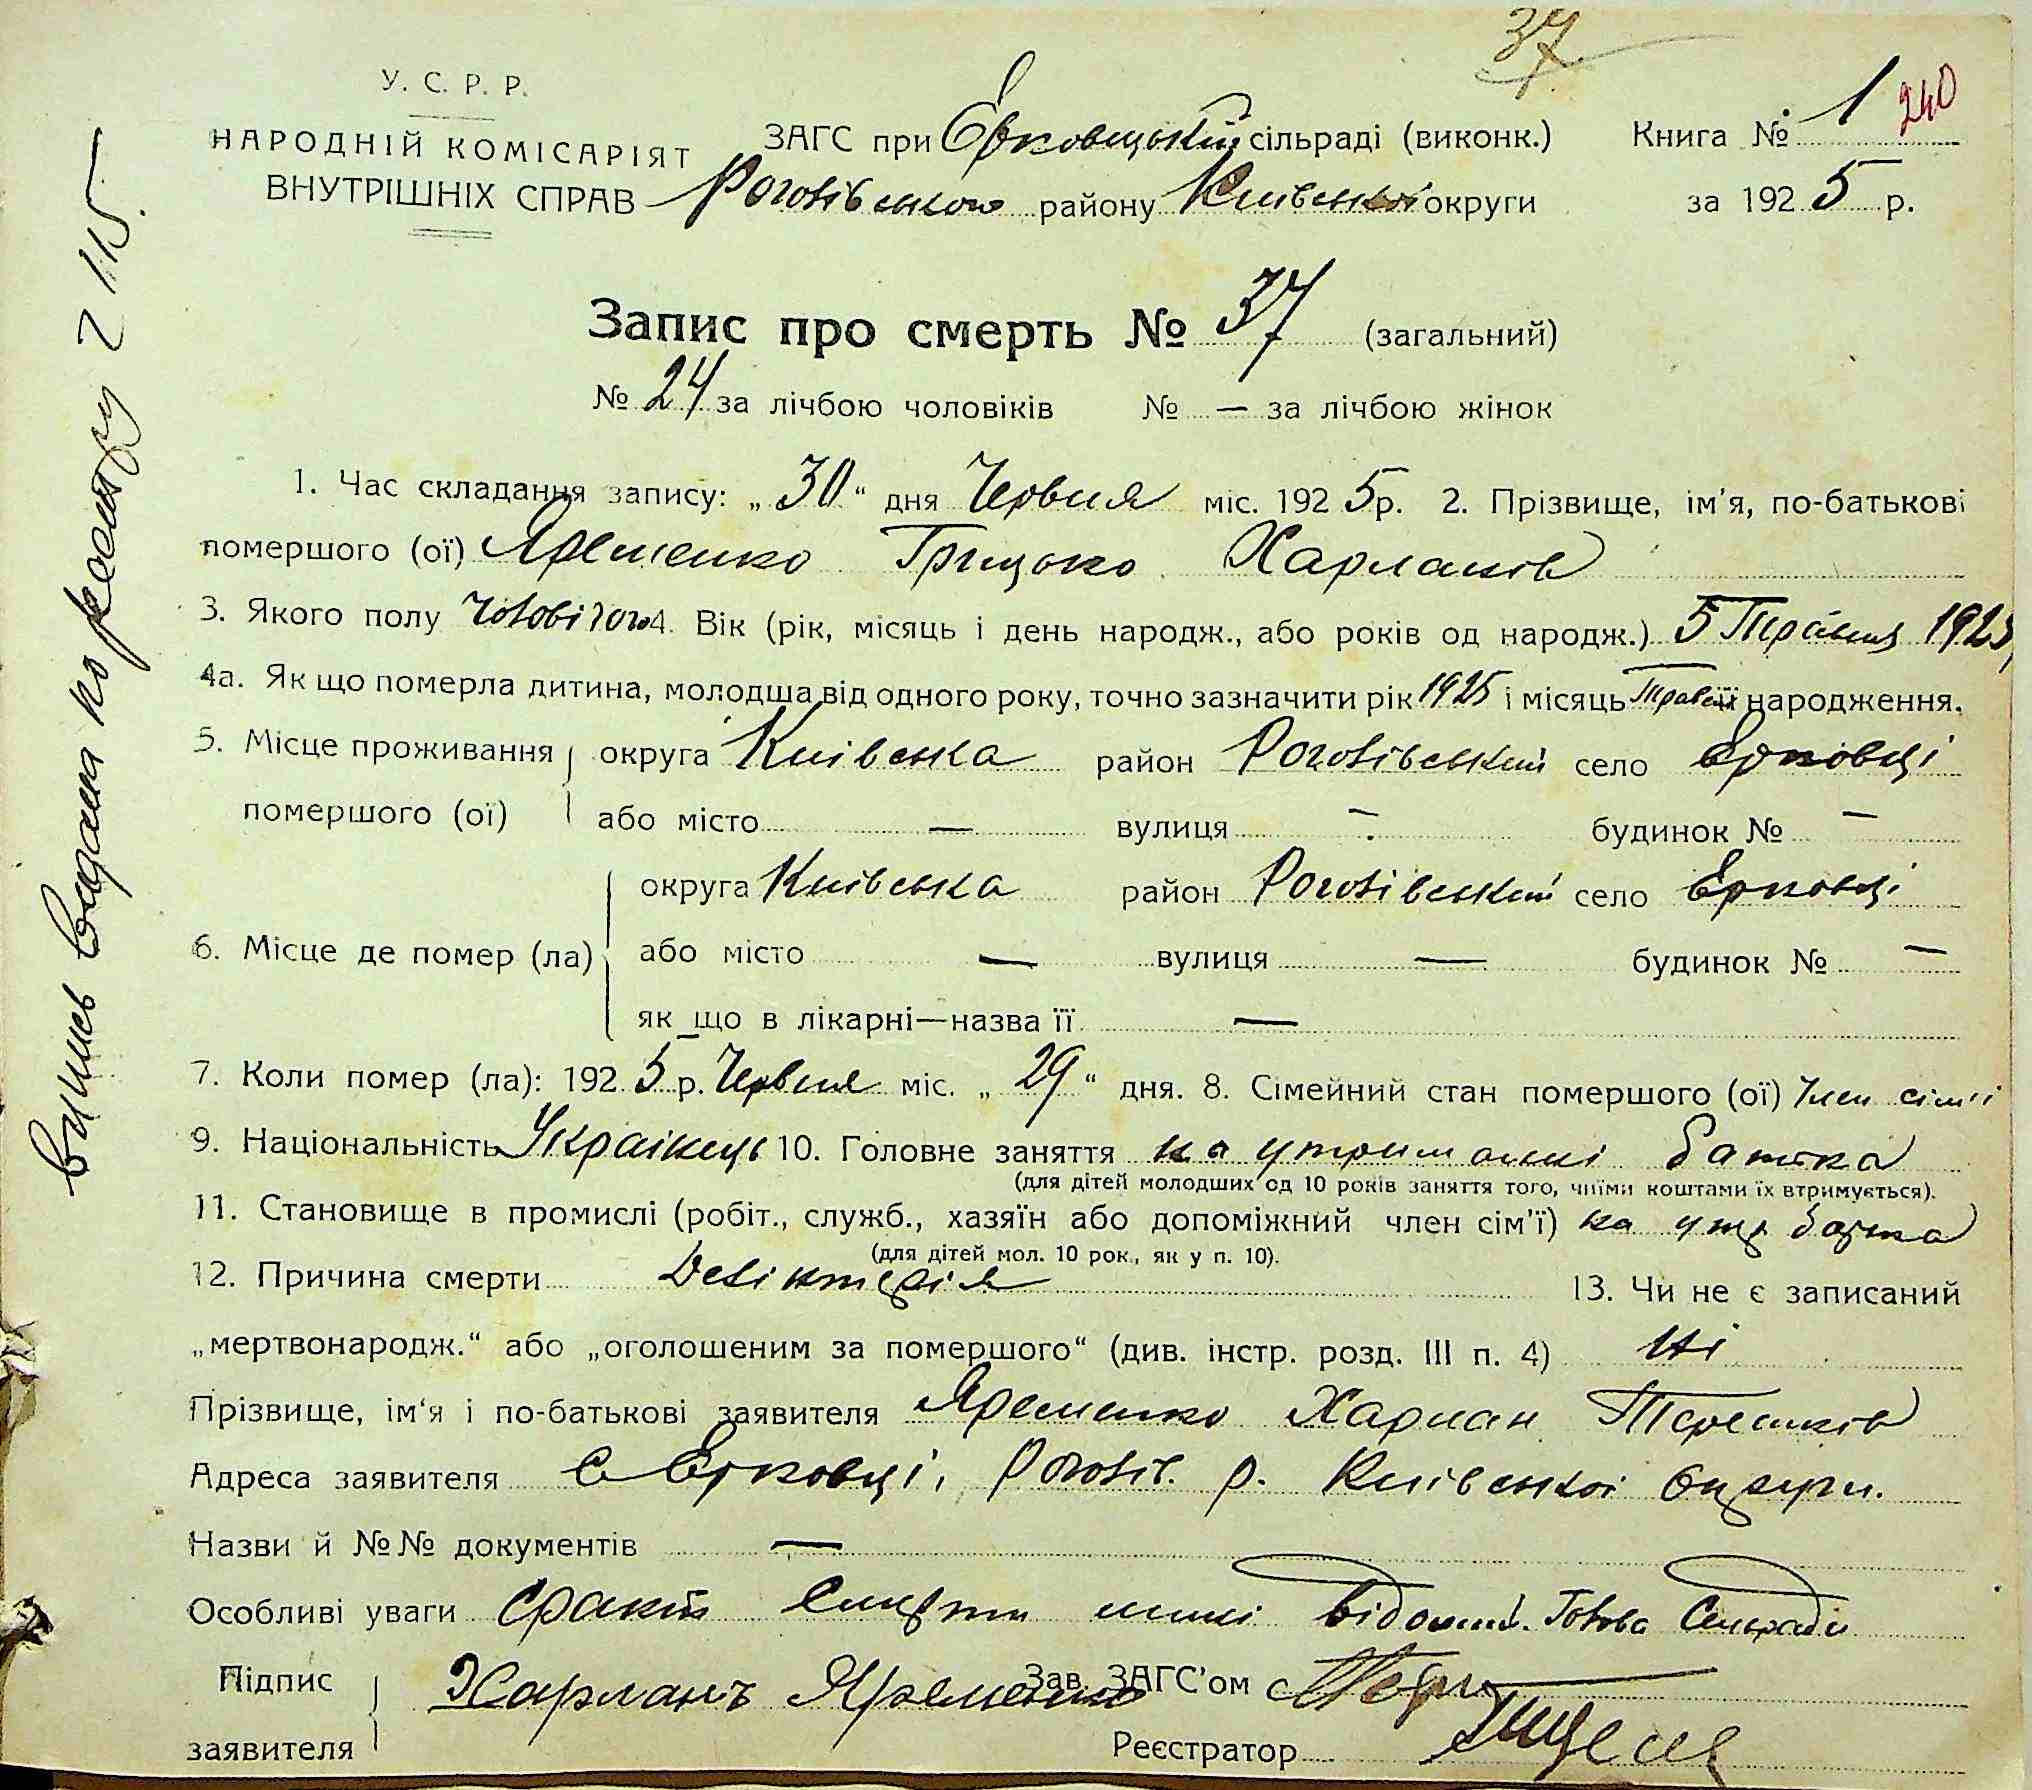 37
У. С. Р. Р.
НАРОДНІЙ КОМІСАРІЯТ
ВНУТРІШНІХ СПРАВ
ЗАГС при Єрковецькій сільраді (виконк.)
Роголівського району Київської округи
Книга № 1 240
за 1925 р.
Запис про смерть № 37 (загальний)
№ 24 за лічбою чоловіків № — за лічбою жінок
1. Час складання запису: „30“ дня Червня міс. 1925 р. 2. Прізвище, ім'я, по-батькові
помершого (ої) Яременко Грицько Харланів
3. Якого полу чоловічого 4. Вік (рік, місяць і день народж., або років од народж.) 5 Травня 1925
4а. Як що померла дитина, молодша від одного року, точно зазначити рік 1925 і місяць народження.
5. Місце проживання округа Київська район Роголівський село Єрковці
помершого (ої) або місто — вулиця — будинок № —
округа Київська район Роголівський село Єрковці
6. Місце де помер (ла) або місто — вулиця — будинок № —
як що в лікарні—назва її —
7. Коли помер (ла): 1925 р. Червня міс. „29“ дня. 8. Сімейний стан помершого (ої) член сім'ї
9. Національність Українець 10. Головне заняття на утриманні батька
(для дітей молодших од 10 років заняття того, чиїми коштами їх втримується).
11. Становище в промислі (робіт., служб., хазяїн або допоміжний член сім'ї) на утр батька
(для дітей мол. 10 рок., як у п. 10).
12. Причина смерти 13. Чи не є записаний
„мертвонародж.“ або „оголошеним за помершого“ (див. інстр. розд. III п. 4) Ні
Прізвище, ім'я і по-батькові заявителя Яременко Харлан
Адреса заявителя с Єрковці, Роголів. р. Київської округи.
Назви й №№ документів —
Особливі уваги факт смерти мині відомий. Голова Сільради
Підпис
заявителя Харланъ Яременко
Зав. ЗАГС'ом
Реєстратор
випись видана по реєстру